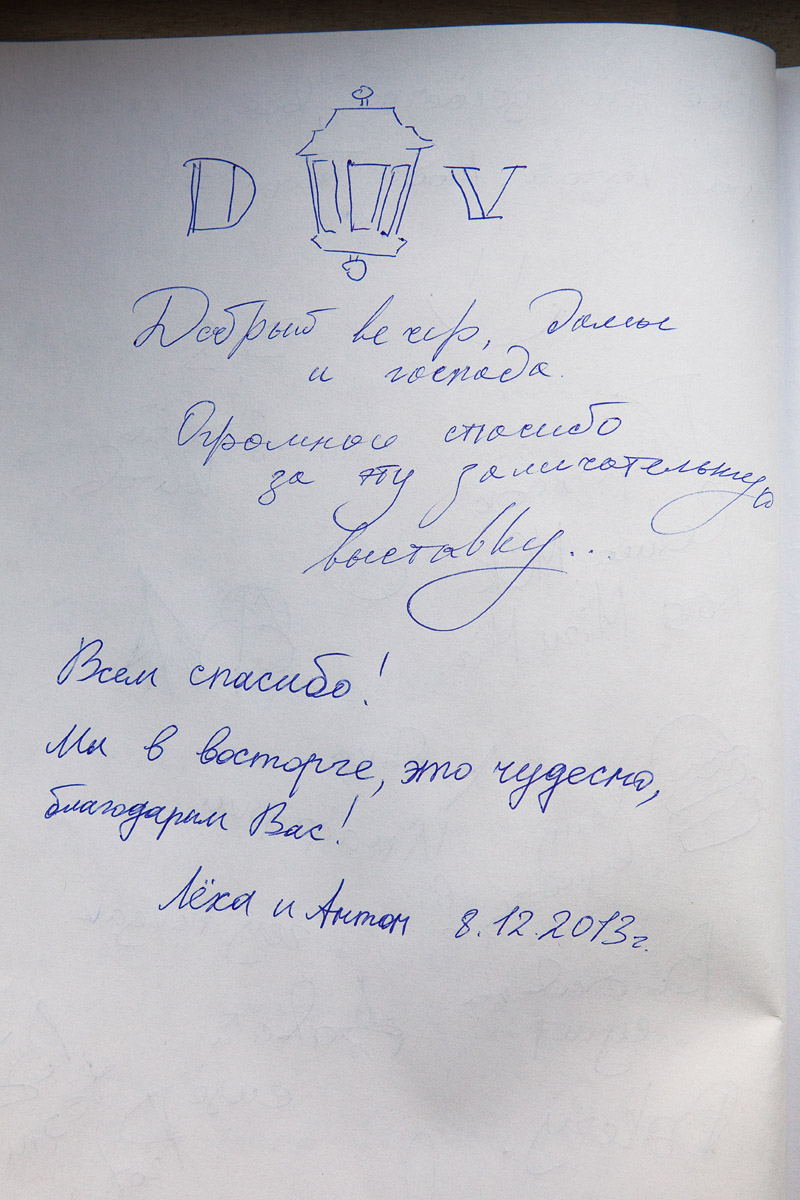 D V
Добрый вечер, дамы
и господа.
Огромное спасибо
за эту замечательную
выставку...
Всем спасибо!
Мы в восторге, это чудесно,
благодарим Вас!
Лёха и Антон 8.12.2013г.